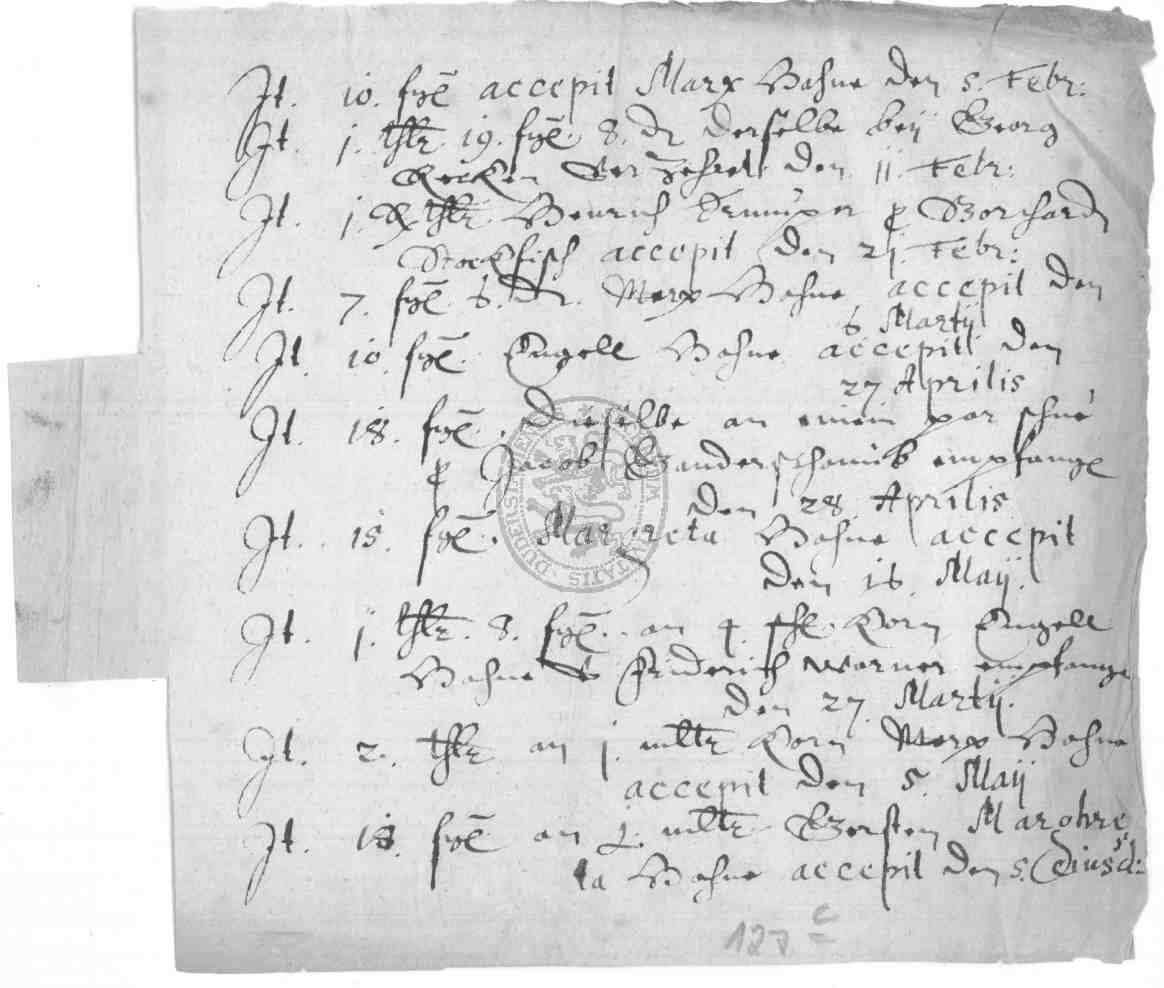 It. 10. fgl accepit Marx Bohne den 5. Febr:
It. j. thlr. 19. fgl. 8. dr derselbe beÿ Georg
verzehret den 11. Febr:
It. j. thlr. Henrich p Borchardt
Stockfisch accepit den 21. Febr:
It. 7. fgl. 6. dr. Marx Bohne accepit den
6 Martij
It. 10. fgl. Engell Bohne accepit den
27 Aprilis
It. 18. fgl. Dieselbe an einem par schue
p Jacob empfange
den 28 Aprilis
It. 15. fgl. Margreta Bohne accepit
den 16. Maij.
It. j. thlr. 8. fgl. an 4. schl. Korn Engell
Bohne Friderich Warner empfange
den 27 Martij.
It. 2. thlr an j. mltr Korn Marx Bohne
accepit den 5. Maij
It. 18. fgl an mltr Gersten Margre
ta Bohne accepit den 5. Eiusd:
127 c